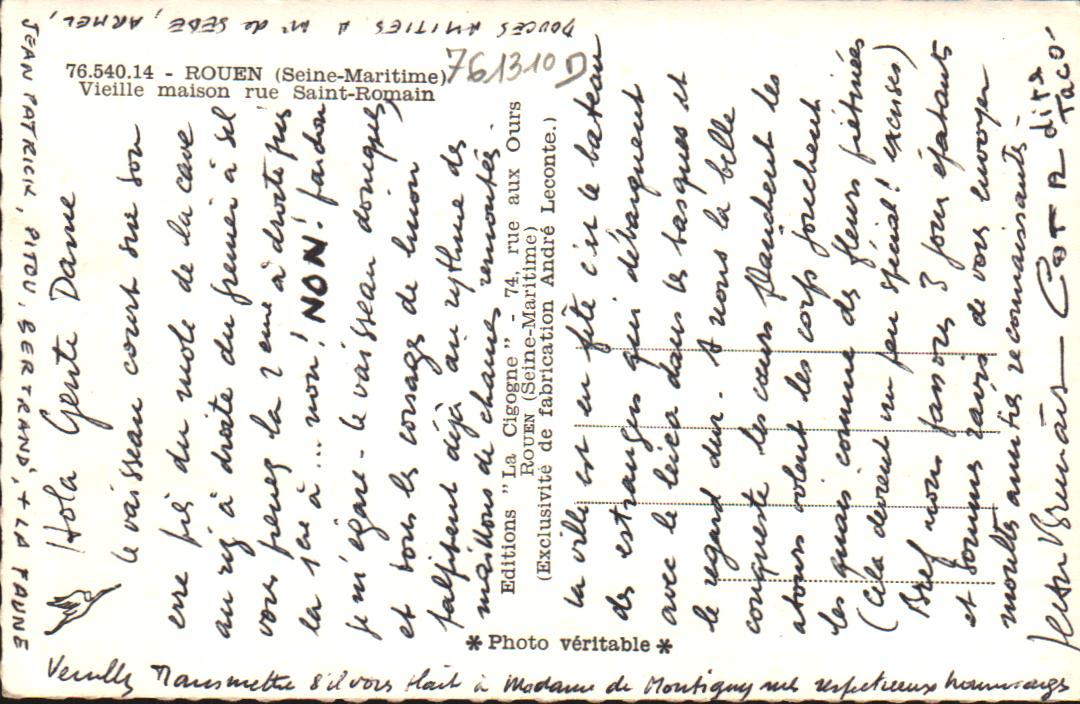 76.540.14 - ROUEN (Seine-Maritime)
Vieille maison rue Saint-Romain
761310 D
Hola Gente Dame
le vaisseau court sur son
erre près du mole de la cave
au riz à droite du grenier à sel
vous prenez la 2 eme à droite puis
la 1ère à ... non! NON! pardon
je m'égare - le vaisseau donques
et sous les corsages de limon
palpitent déjà au rythme des
maillons de chaines remontés.
Editions "La Cigogne" - 74, rue aux Ours
ROUEN (Seine-Maritime)
(Exclusivité de fabrication André Leconte.)
la ville est en fête c'est le bateau
des estranges qui débarquent
avec le leira dans les basques et
le regard dur. A nous la belle
conqueste les cœurs flanchent les
atours volent les corps jonchent
les quais comme des fleurs piétinées
(Cela devient un peu spécial! excuses)
Bref nous passons 3 jours épatants
et sommes ravis de vous envoyer
moultes amitiés reconnaissantes -
Jean Brumas - dit
Taco
* Photo véritable *
Veuillez transmettre s'il vous plait à Madame de Montigny mes respectueux hommages
JEAN PATRICK, PITOU, BERTRAND, + LA FAUNE
DOUCES AMITIES A Mr de SEDE, ARMEL,